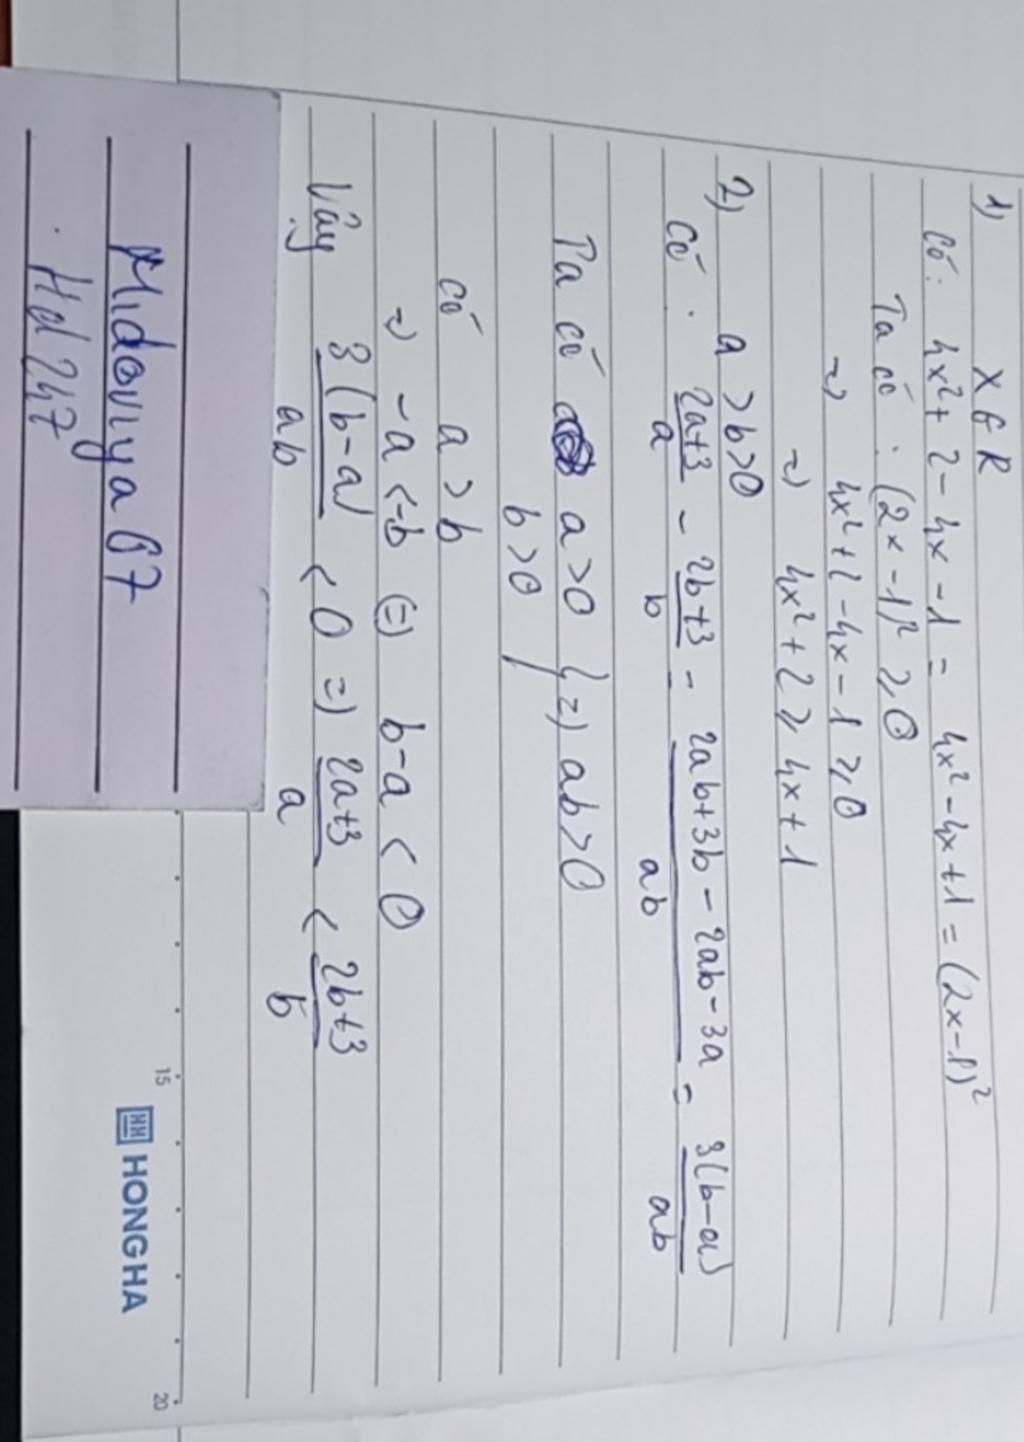 1) x ∈ R
Có: 4x² + 2 - 4x - 1 = 4x² - 4x + 1 = (2x - 1)²
Ta có: (2x - 1)² ≥ 0
=) 4x² + 2 - 4x - 1 ≥ 0
=) 4x² + 2 ≥ 4x + 1
2) a > b > 0
Có: (2a+3)/a - (2b+3)/b = (2ab + 3b - 2ab - 3a)/ab = 3(b-a)/ab
Ta có a > 0 } =) ab > 0
b > 0
có a > b
=) -a < -b (=) b - a < 0
Vậy 3(b-a)/ab < 0 =) (2a+3)/a < (2b+3)/b
Midoviya67
Hd247
15
20
HH HONG HA